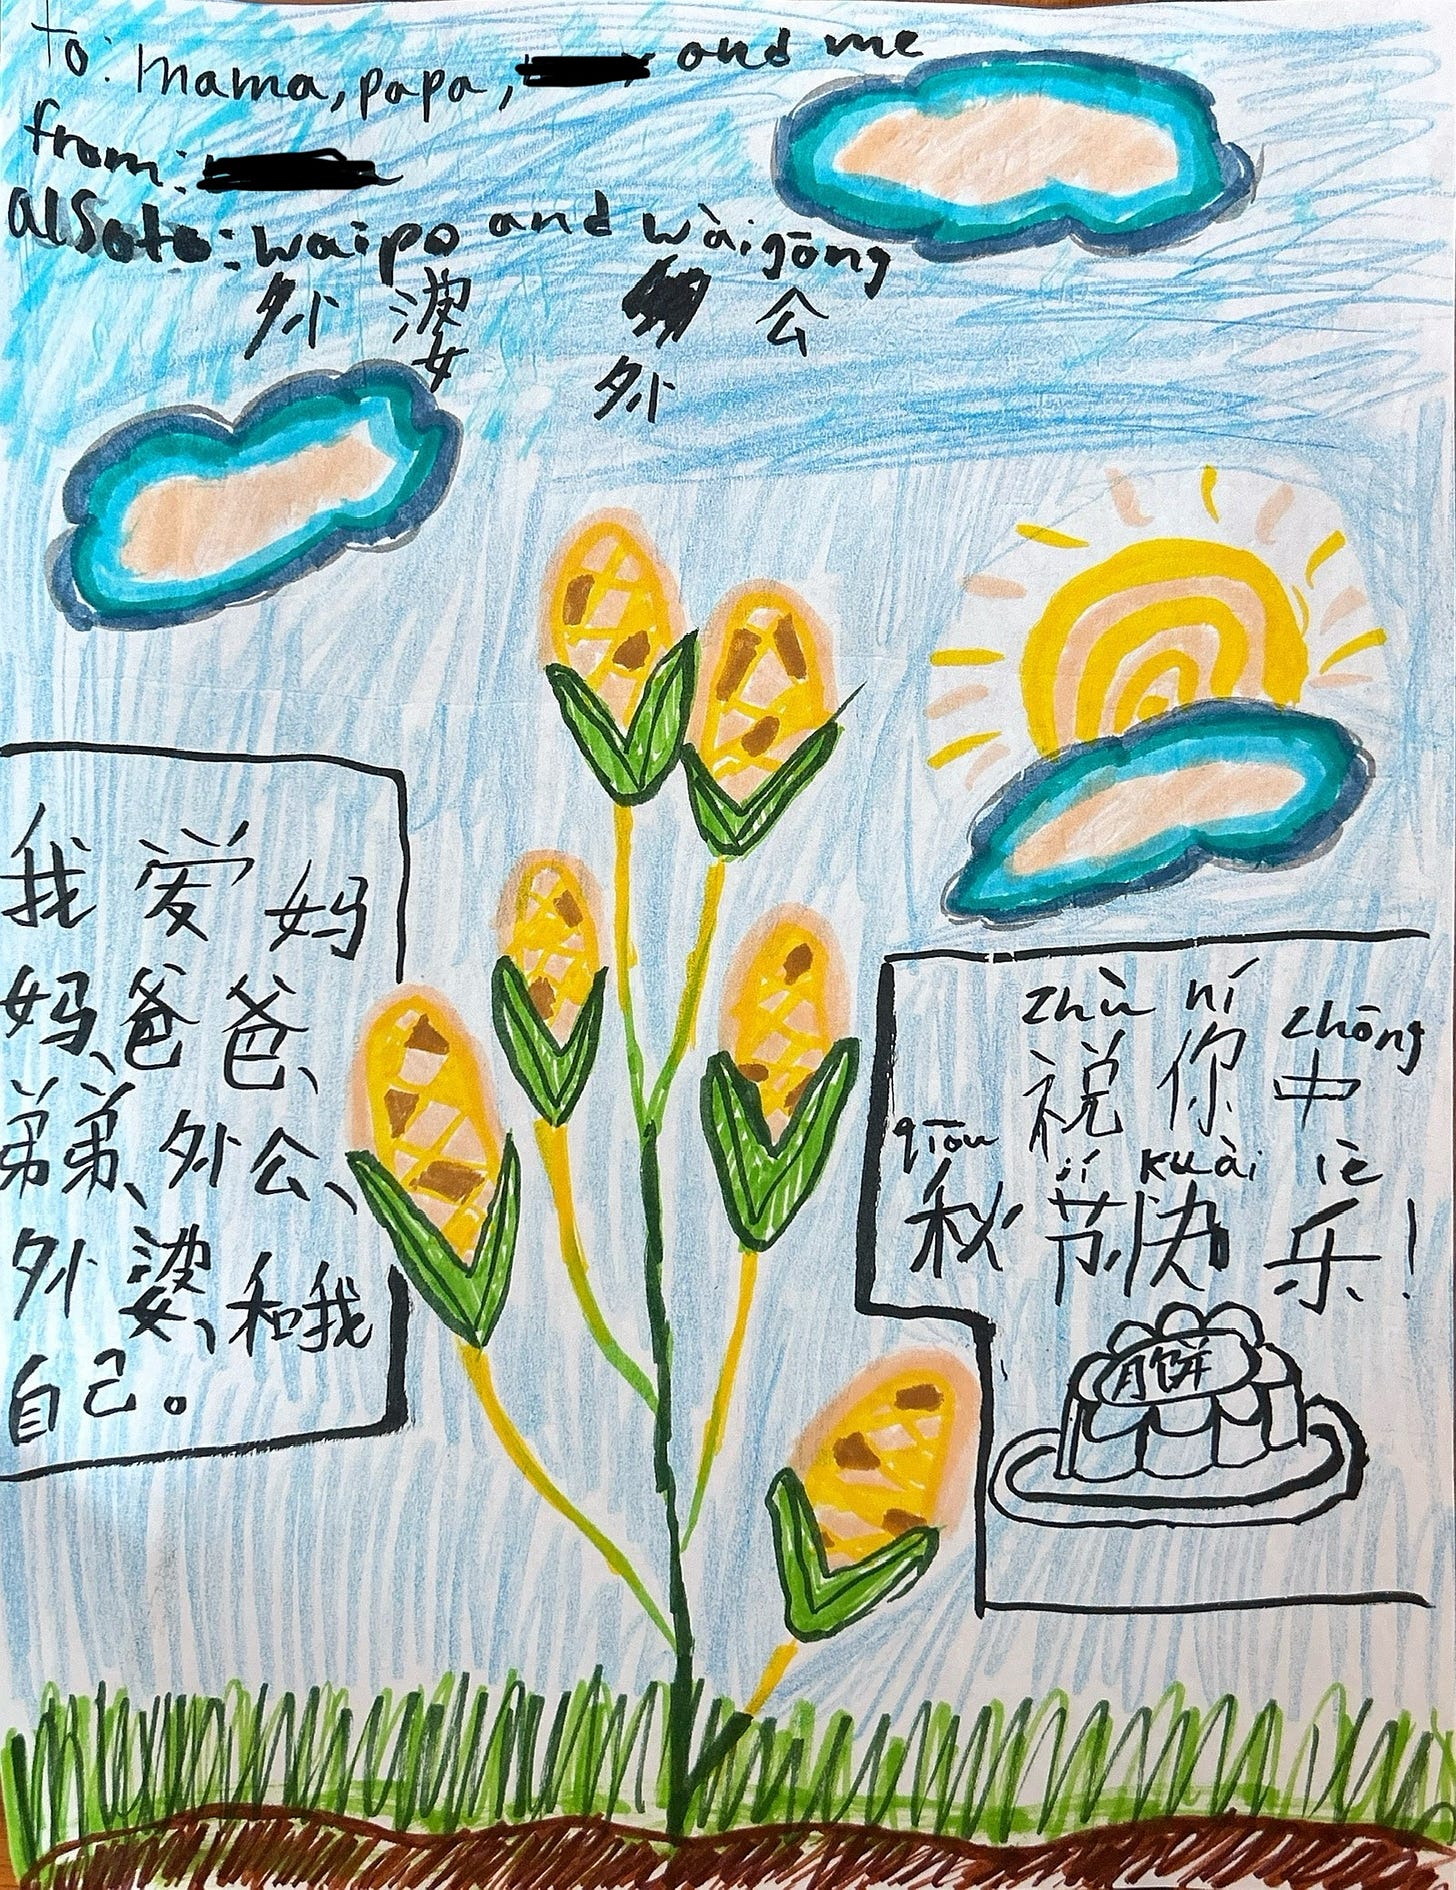 To: mama, papa, and me
from:
also to: waipo and wàigōng
外 婆 公
外
我 爱 妈
妈、爸 爸、
弟弟、外公、
外 婆、和我
自己。
zhù ní zhōng
祝 你 中
qīou jí kuài iè
秋 节 快 乐！
月饼